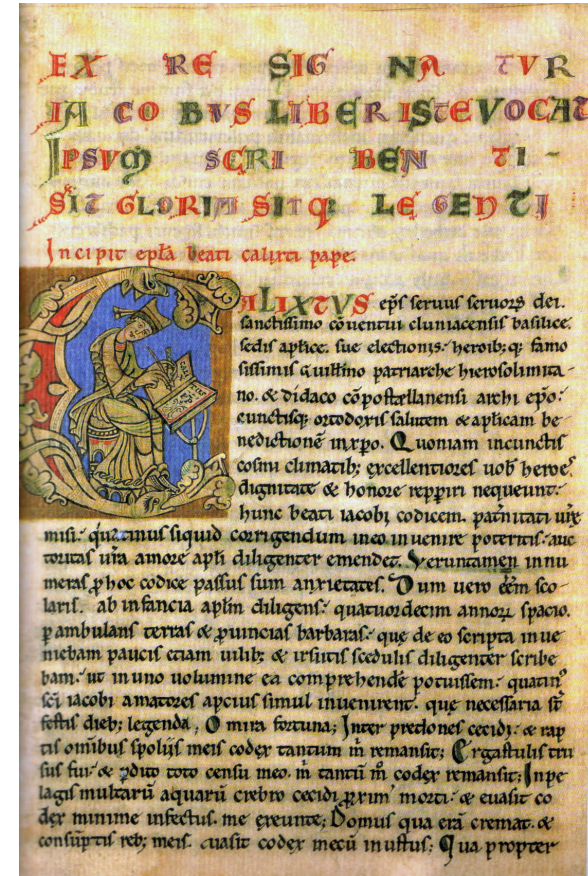 EX RE SIGNATUR
IACOBUS LIBER ISTE VOCAT
IPSUM SCRIBENTI-
SIT GLORIA SITQ; LEGENTI
Incipit epła beati calixti pape.
CALIXTUS ep̄s seruus seruoꝝ dei.
sanctissimo cōuentui cluniacensis basilice.
sedis aplice. sue electionis. heroib; q; famo
sissimis Guillmo patriarche hierosolimita-
no. & didaco cōpostellanensi archi ep̄o.
cunctisq; ortodoxis salutem & aplicam be-
nedictionē in xp̄o. Quoniam in cunctis
cosmi climatib; excellentiores uob heroes
dignitate & honore reppiri nequeunt.
hunc beati iacobi codicem. pat̄nitati ur̄e
misi. quatinus siquid corrigendum in eo inuenire poteritis. auc
toritas ur̄a amore apl̄i diligenter emendet. Veruntamen innu
meras ꝓ hoc codice passus sum anxietates. Dum uero eēm sco-
laris. ab infancia apl̄m diligens. quatuordecim annoꝝ spacio.
ꝑambulans terras & ꝓuincias barbaras. que de eo scripta inue
niebam paucis etiam uilib; & irsutis scedulis diligenter scribe
bam. ut in uno uolumine ea comprehendē potuissem. quatin⁹
sc̄i iacobi amatores apcius simul inuenirent. que necessaria st̄
festis dieb; legenda; O mira fortuna; Inter predones cecidi. & rap
tis omibus spolijs meis codex tantum m̄ remansit; Ergastulis tru
sus fui. & ꝑdito toto censu meo. m̄ tantū m̊ codex remansit; In pe
lagis multarū aquarū crebro cecidi. ꝓxim⁹ morti. & euasit co
dex minime infectus. me exeunte; Domus qua erā cremat̄. &
consūptis reb; meis. euasit codex mecū inustus; Qua propter